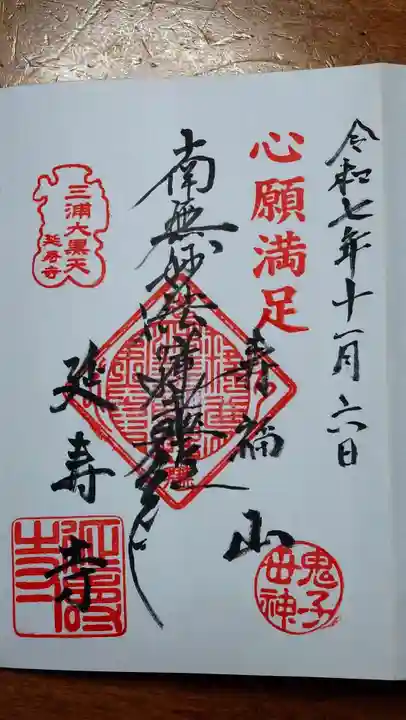 令和七年十一月六日
心願満足
寿福山
鬼子母神
南無妙法蓮華経
延寿寺
三浦大黒天
延寿寺